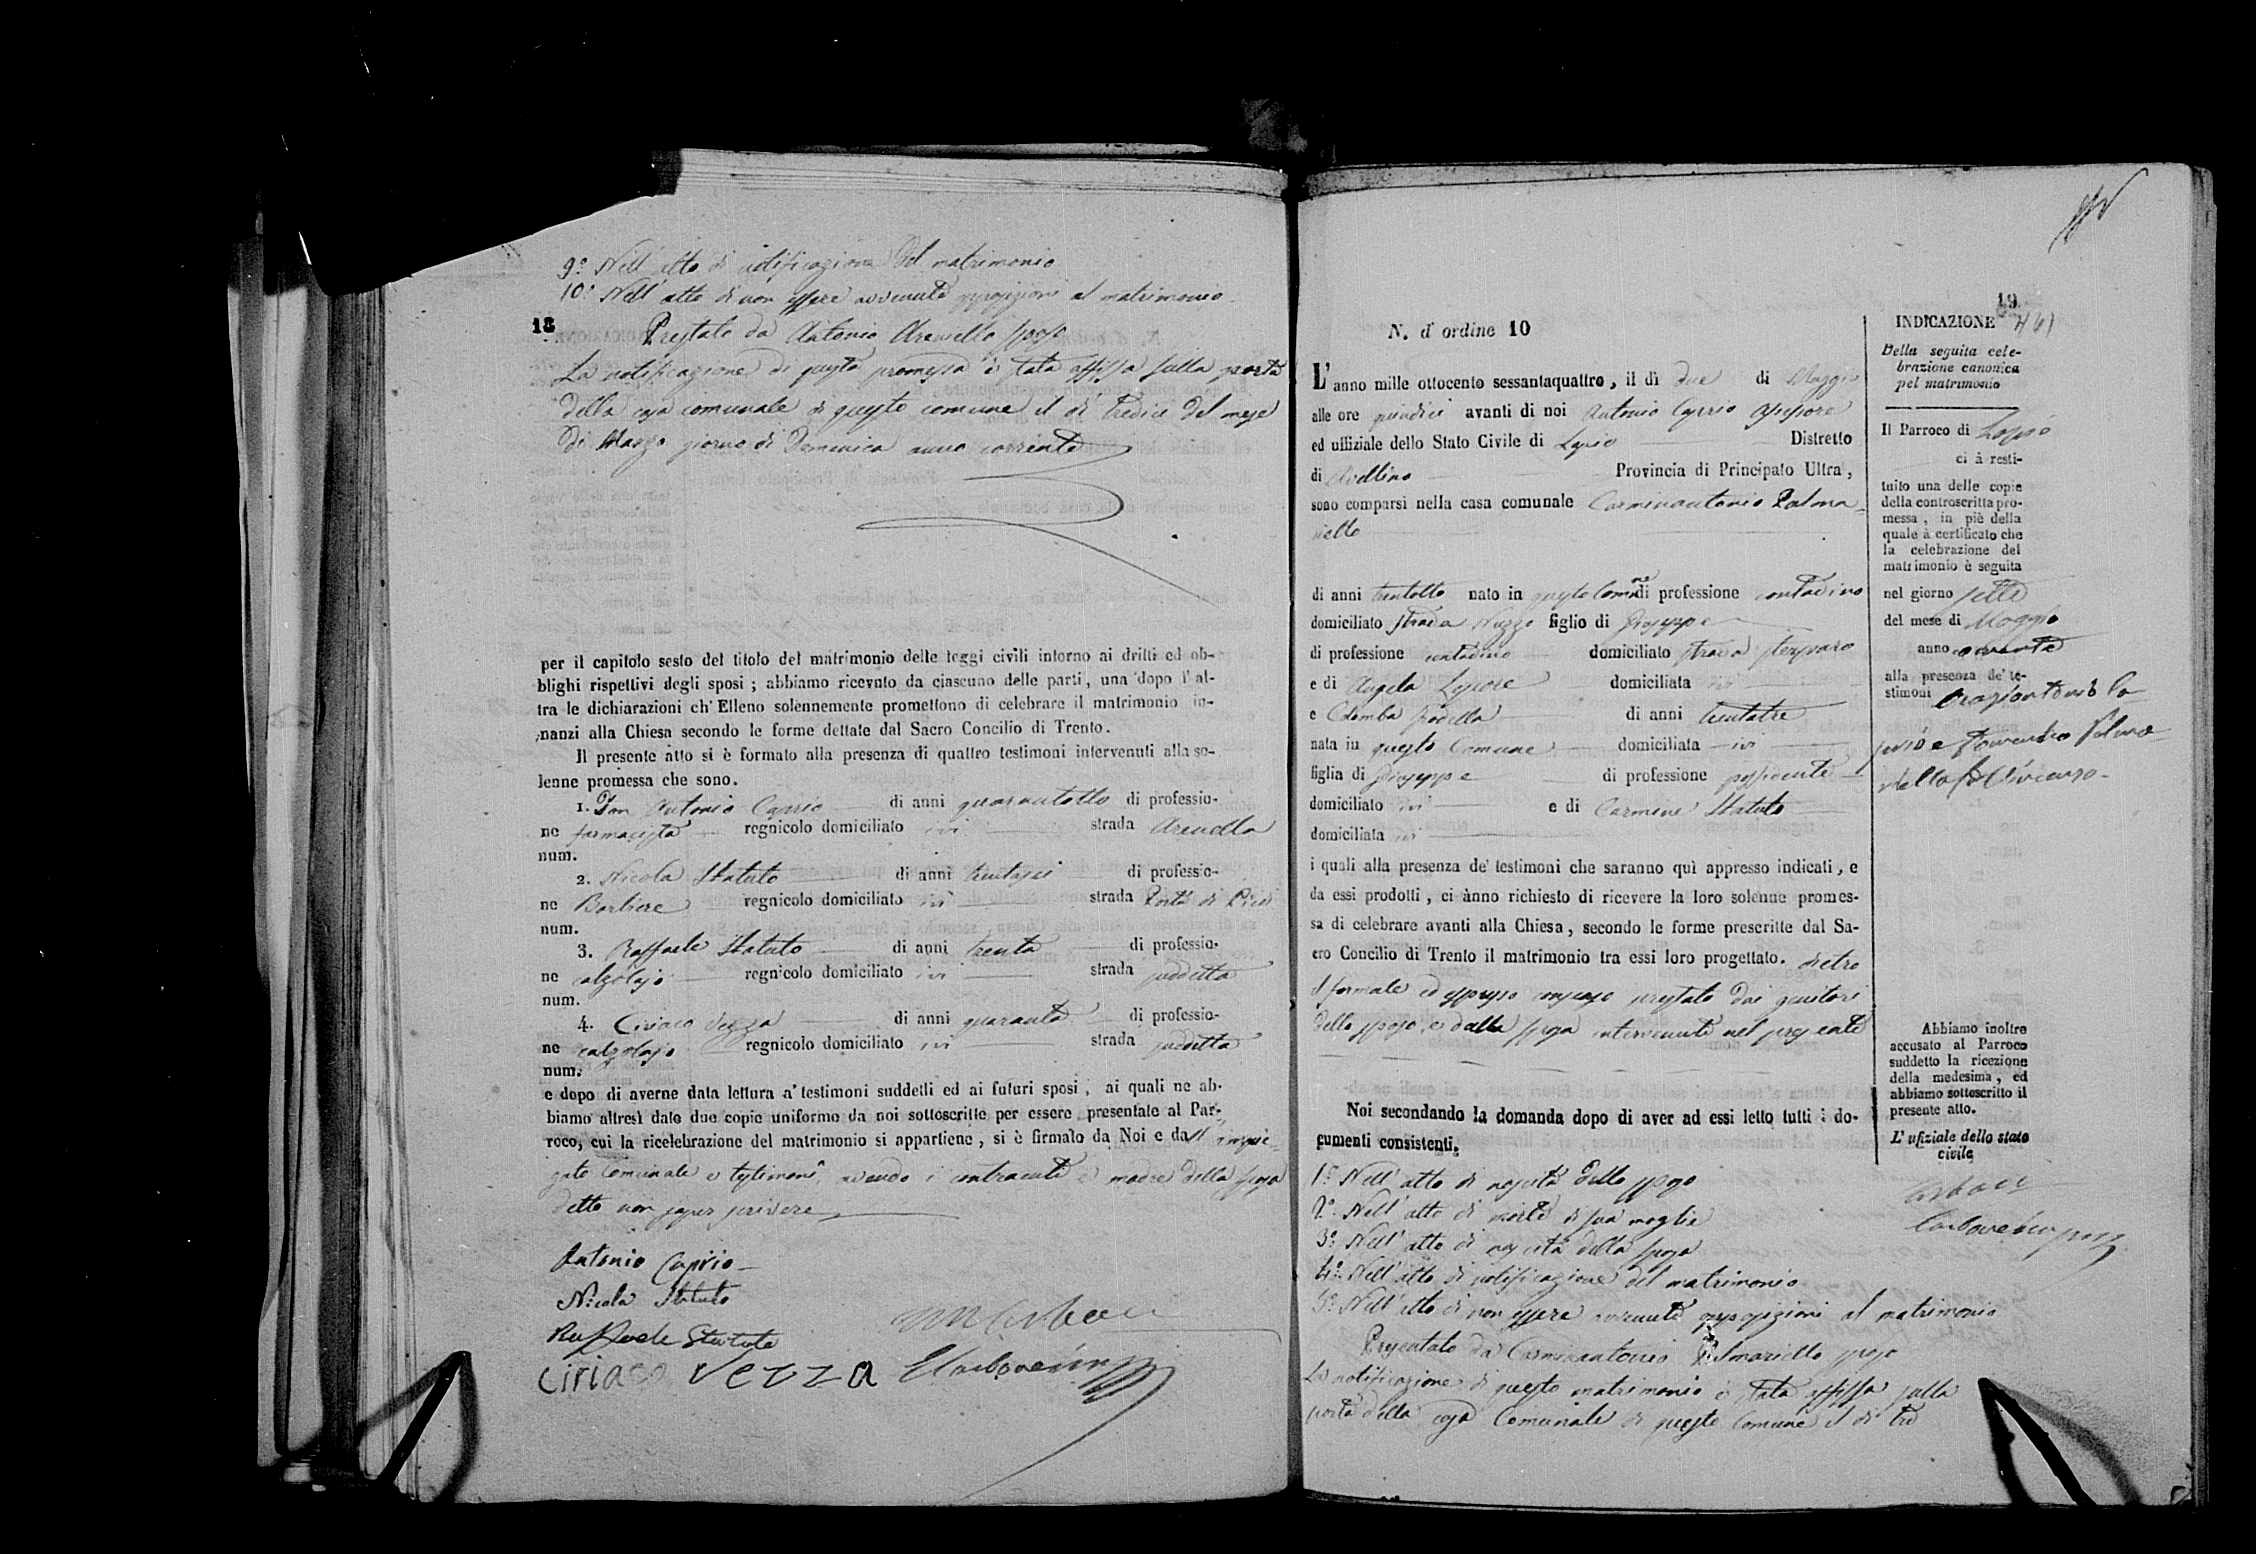 9º Nell'atto di notificazione del matrimonio
10º Nell'atto di non essere avvenute opposizioni al matrimonio
18
Prestato da Antonio Arenella sposo
La notificazione di questa promessa è stata affissa sulla porta
della casa comunale di questo comune il dì tredici del mese
di Marzo giorno di Domenica anno corrente
per il capitolo sesto del titolo del matrimonio delle leggi civili intorno ai dritti ed ob-
blighi rispettivi degli sposi ; abbiamo ricevuto da ciascuno delle parti, una dopo l'al-
tra le dichiarazioni ch'Elleno solennemente promettono di celebrare il matrimonio in-
nanzi alla Chiesa secondo le forme dettate dal Sacro Concilio di Trento.
Il presente atto si è formato alla presenza di quattro testimoni intervenuti alla so-
lenne promessa che sono.
1. Don Antonio Caprio di anni quarantotto di professio-
ne farmacista regnicolo domiciliato ivi strada Arenella
num.
2. Nicola Statuto di anni trentasei di professio-
ne Barbiere regnicolo domiciliato ivi strada Porta di
num.
3. Raffaele Statuto di anni trenta di professio-
ne calzolajo regnicolo domiciliato ivi strada suddetta
num.
4. Ciriaco Vezza di anni quaranta di professio-
ne calzolajo regnicolo domiciliato ivi strada suddetta
num.
e dopo di averne data lettura a' testimoni suddetti ed ai futuri sposi, ai quali ne ab-
biamo altresì dato due copie uniforme da noi sottoscritte per essere presentate al Par-
roco, cui la ricelebrazione del matrimonio si appartiene, si è firmato da Noi e dall' impie-
gato Comunale e testimoni, avendo i contraenti e madre della sposa
detto non saper scrivere
Antonio Caprio
Nicola Statuto
Raffaele Statuto
Ciriaco Vezza
19
N. d' ordine 10
L'anno mille ottocento sessantaquattro, il dì due di Maggio
alle ore quindici avanti di noi Antonio Caprio assessore
ed uffiziale dello Stato Civile di Lapio Distretto
di Avellino Provincia di Principato Ultra,
sono comparsi nella casa comunale Carminantonio Palma-
riello
di anni trentotto nato in questo Comune di professione contadino
domiciliato strada figlio di Giuseppe
di professione contadino domiciliato strada
e di Angela domiciliata ivi
e Colomba di anni trentatre
nata in questo Comune domiciliata ivi
figlia di Giuseppe di professione possidente
domiciliato ivi e di Carmine Statuto
domiciliata ivi
i quali alla presenza de' testimoni che saranno quì appresso indicati, e
da essi prodotti, ci ànno richiesto di ricevere la loro solenne promes-
sa di celebrare avanti alla Chiesa, secondo le forme prescritte dal Sa-
cro Concilio di Trento il matrimonio tra essi loro progettato. dietro
il formale ed espresso consenso prestato dai genitori
dello sposo, e dalla sposa intervenuti nel presente
Noi secondando la domanda dopo di aver ad essi letto tutti i do-
cumenti consistenti.
1º Nell'atto di nascita dello sposo
2º Nell'atto di morte di sua moglie
3º Nell'atto di nascita della sposa
4º Nell'atto di notificazione del matrimonio
5º Nell'atto di non essere avvenute opposizioni al matrimonio
Presentato da Carminantonio Palmariello sposo
La notificazione di questo matrimonio è stata affissa sulla
porta della casa Comunale di questo Comune il dì tre
INDICAZIONE
Della seguita cele-
brazione canonica
pel matrimonio
Il Parroco di Lapio
ci à resti-
tuito una delle copie
della controscritta pro-
messa, in piè della
quale à certificato che
la celebrazione del
matrimonio è seguita
nel giorno sette
del mese di Maggio
anno corrente
alla presenza de' te-
stimoni
Abbiamo inoltre
accusato al Parroco
suddetto la ricezione
della medesima, ed
abbiamo sottoscritto il
presente atto.
L' ufiziale dello stato
civile